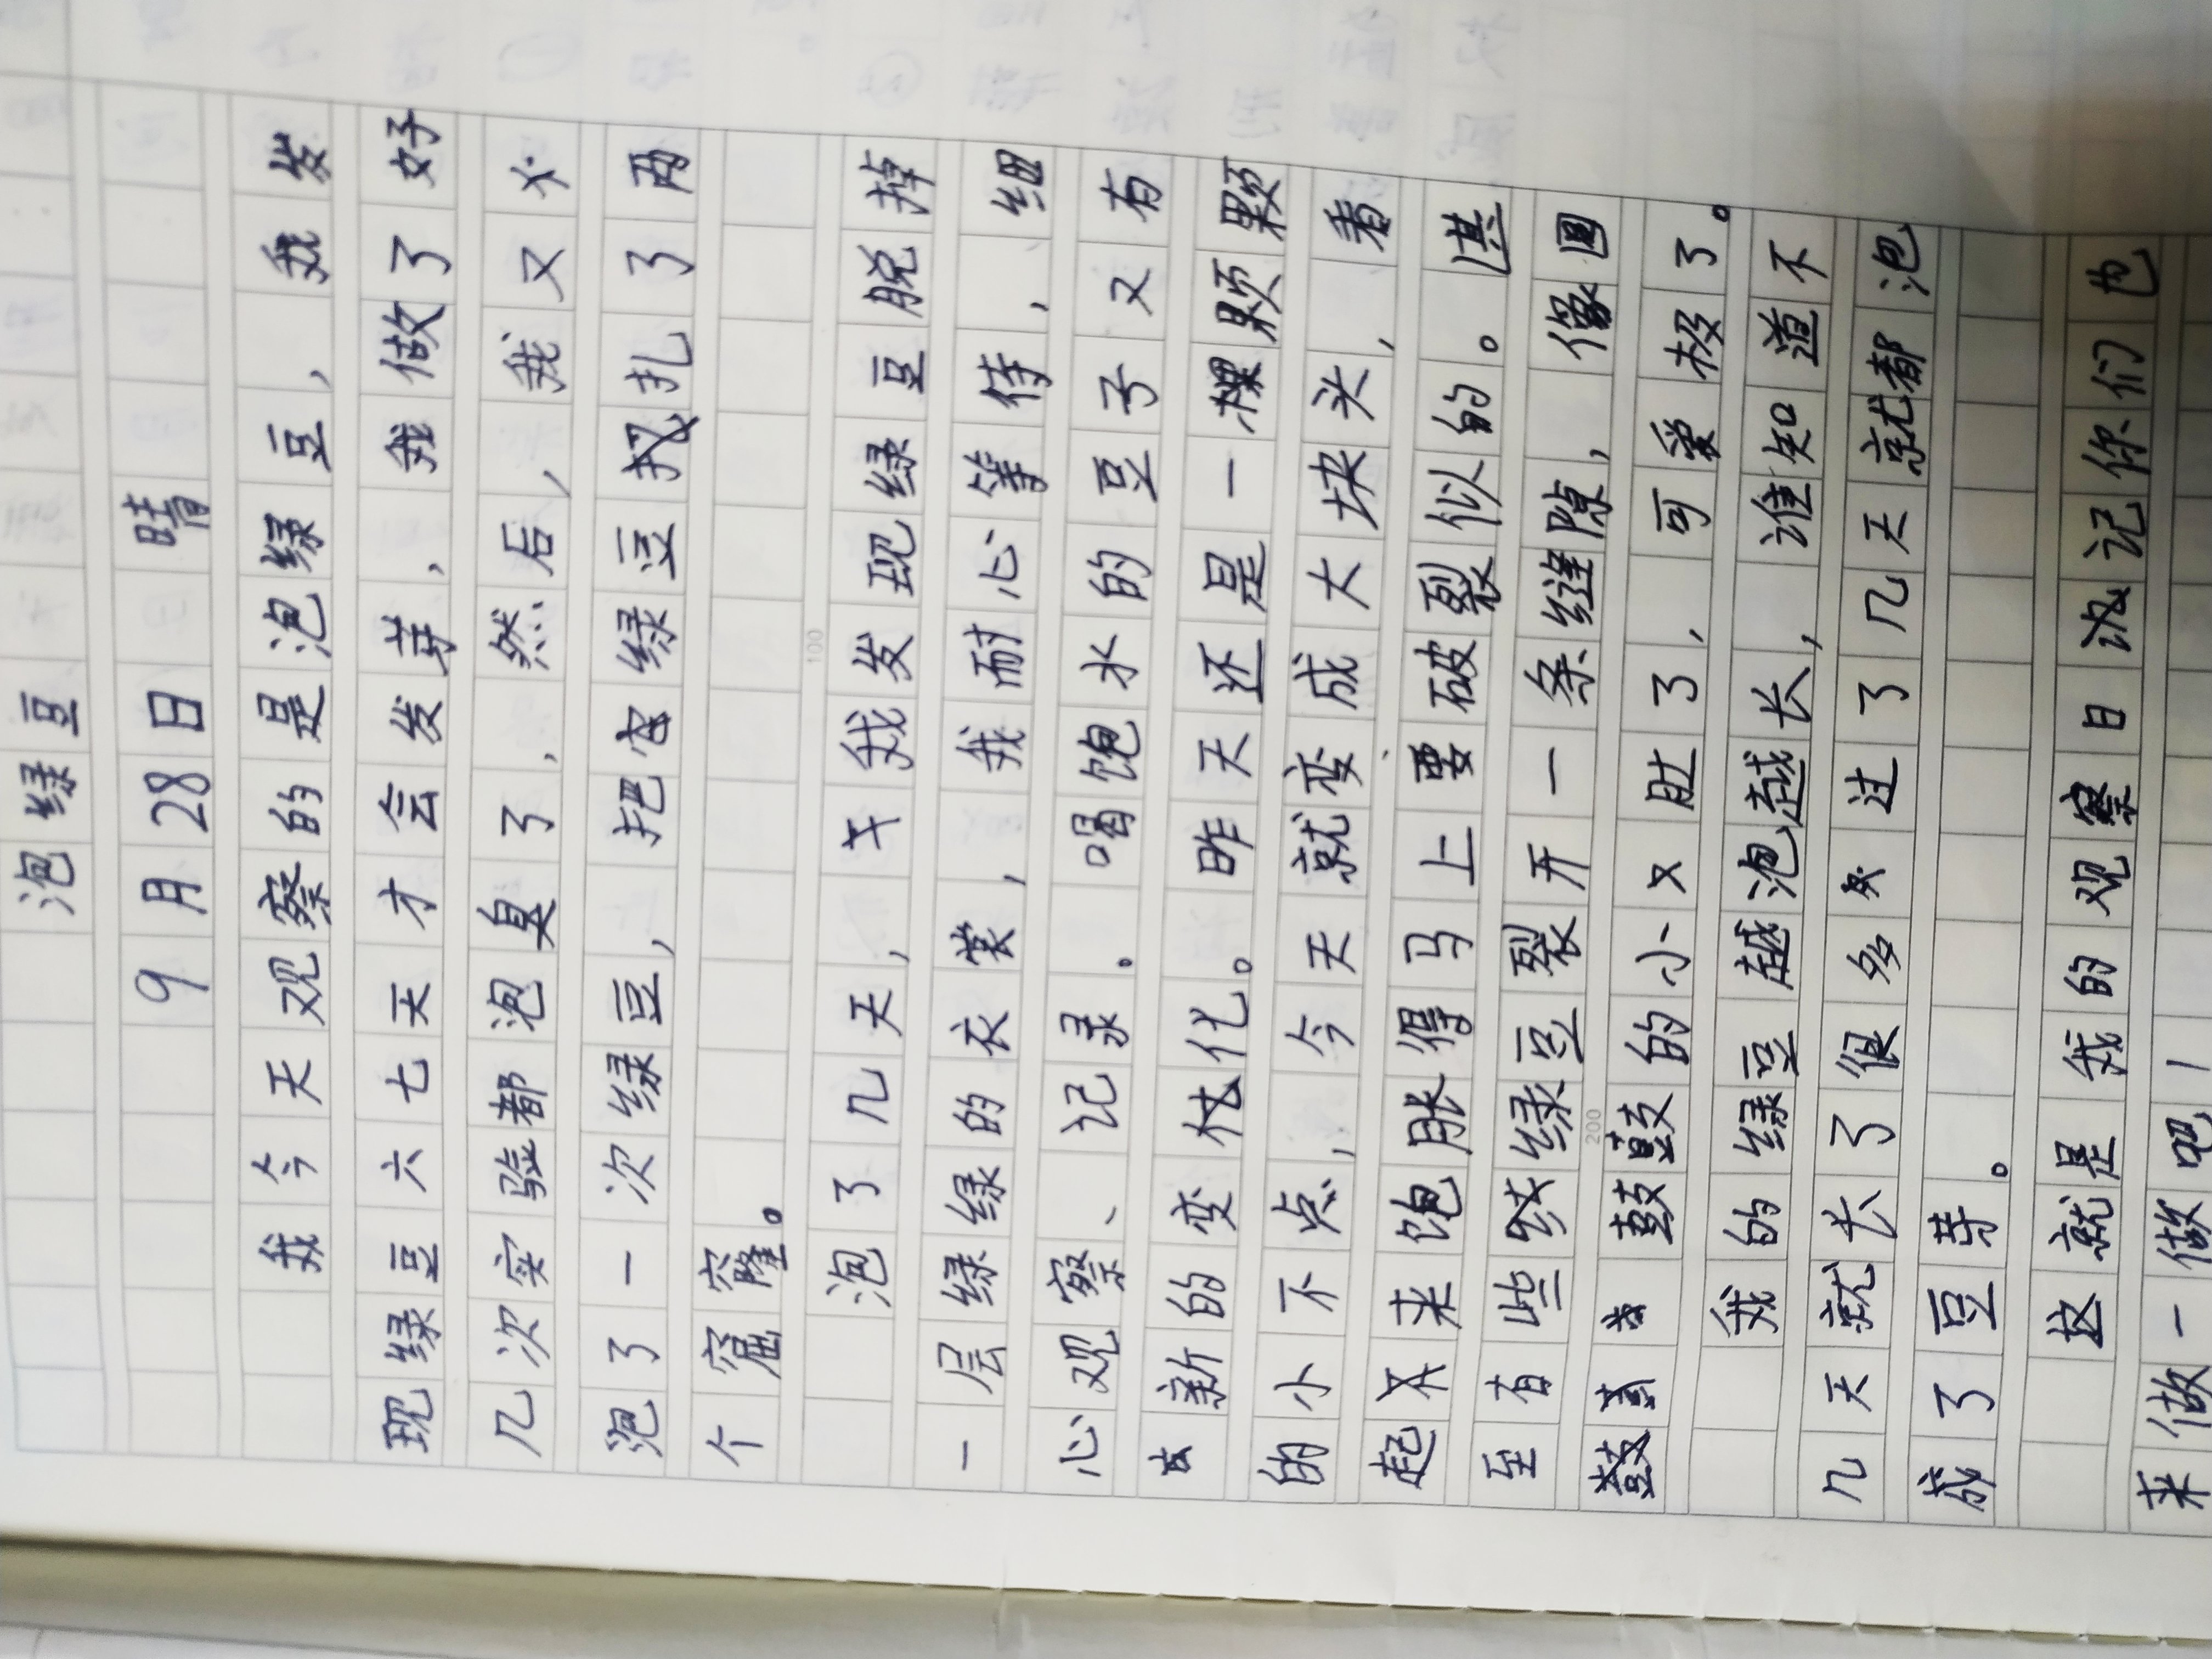 泡绿豆
9月28日 晴
我今天观察的是泡绿豆，我发
现绿豆六七天才会发芽，我做了好
几次实验都泡臭了，然后，我又
泡了一次绿豆，把绿豆扎了两
个窟窿。
泡了几天，我发现绿豆脱掉
一层绿绿的衣裳，我耐心等待，细
心观察、记录。喝饱水的豆子又有
新的变化。昨天还是一颗颗
的小不点，今天就变成大块头，看
起来饱胀得马上要破裂似的。
至有些绿豆裂开一条缝隙，像圆
鼓鼓的小肚了，可爱极了。
我的绿豆越泡越长，谁知道不
几天就长了很多过了几天就都泡
成了豆芽。
这就是我的观察日记你们也
来做一做吧！
100
200